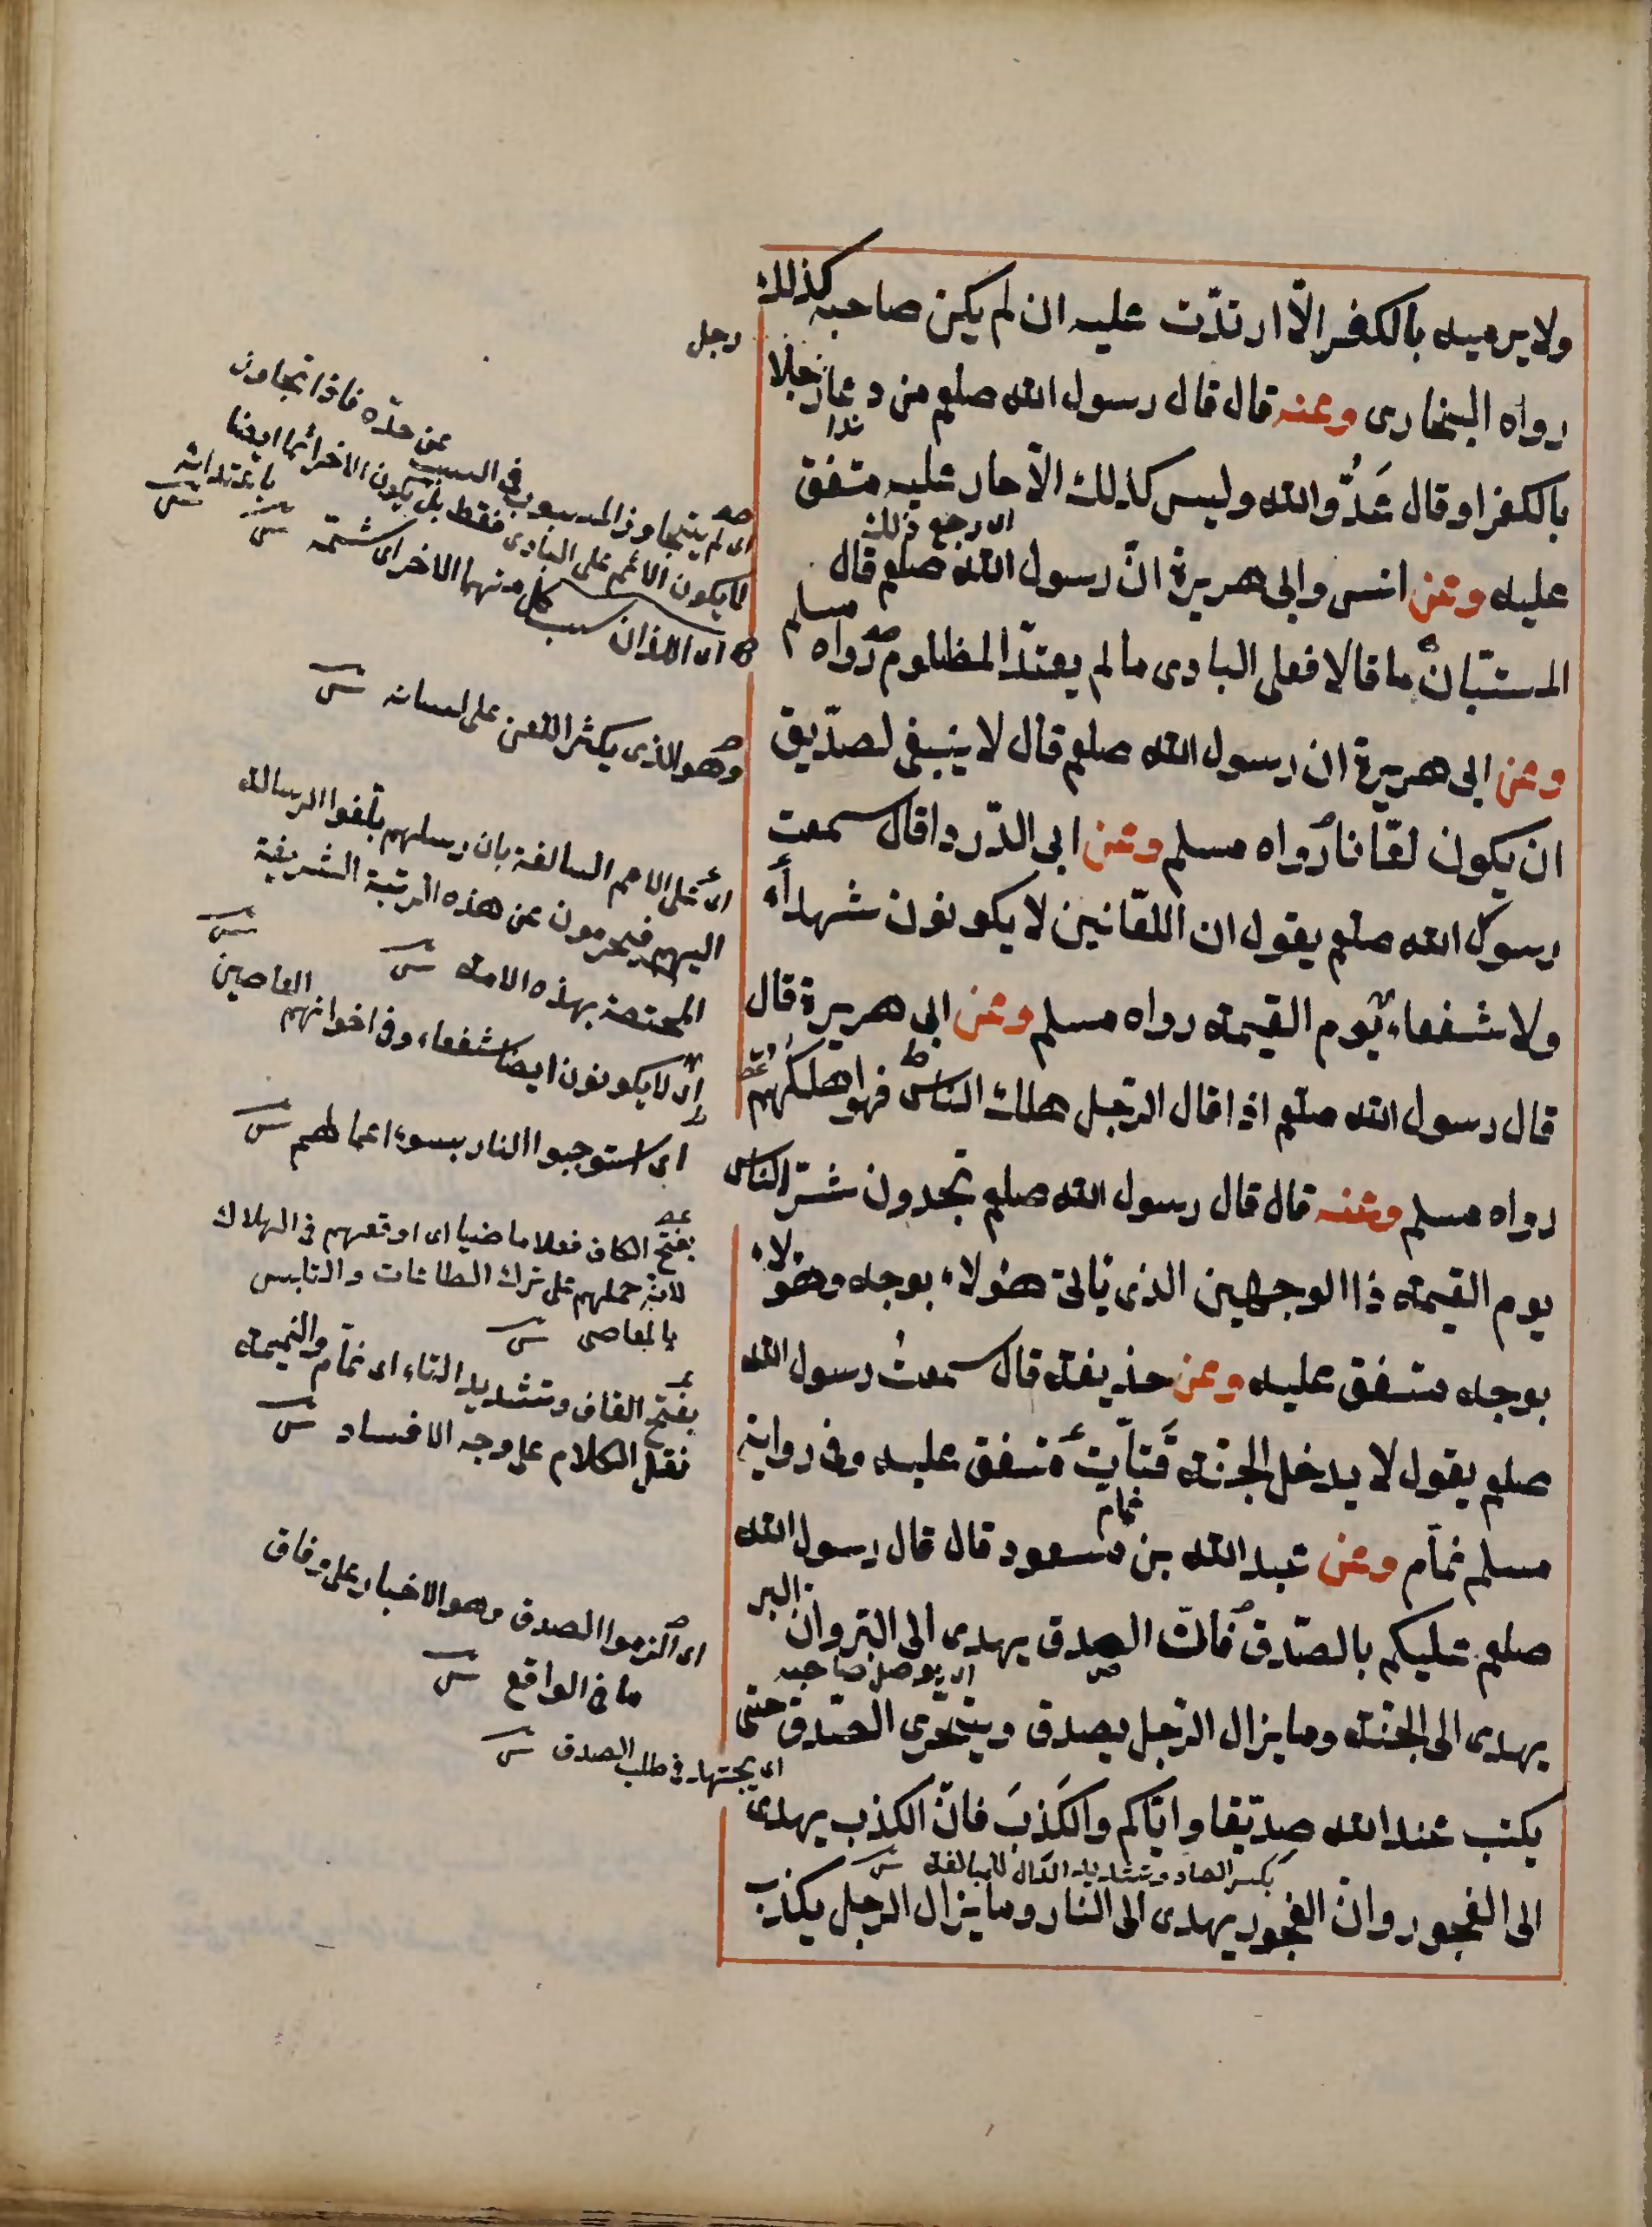 ولا يرميه بالكفر الّا ارتدّت عليه ان لم يكن صاحبه كذلك
رواه البخارى وعنه قال قال رسول الله صلعم من دعا رجلا
ندا
بالكفر او قال عَدُوُّ الله وليس كذلك الّا حار عليه متفق
اى رجع ذلك
عليه وعن انس وابى هريرة انّ رسول الله صلعم قال
المستبّان ما قالا فعلى البادى ما لم يعتد المظلوم رواه مسلم
وعن ابى هريرة ان رسول الله صلعم قال لا ينبغى لصدّيق
ان يكون لعّانا رواه مسلم وعن ابى الدّرداء قال سمعت
رسول الله صلعم يقول ان اللعّانين لا يكونون شهداء
ولا شفعاء يوم القيمة رواه مسلم وعن ابى هريرة قال
قال رسول الله صلعم اذا قال الرجل هلك الناس فهو اهلكهم
رواه مسلم وعنه قال قال رسول الله صلعم تجدون شرّ الناس
يوم القيمة ذا الوجهين الذى ياتى هؤلاء بوجه وهؤلاء
بوجه متفق عليه وعن حذيفة قال سمعتُ رسول الله
صلعم يقول لا يدخل الجنة قَتاّت متفق عليه وفى رواية
نمام
مسلم نمّام وعن عبد الله بن مسعود قال قال رسول الله
صلعم عليكم بالصّدق فانّ الصدق يهدى الى البرّ وان البر
اى يوصل صاحبه
يهدى الى الجنّة وما يزال الرّجل يصدق ويتحرّى الصّدق حتى
يكتب عند الله صدّيقا وايّاكم والكَذبَ فانّ الكذب يهدى
بكسر الصاد وتشديد الدّال للمبالغة
الى الفجور وانّ الفجور يهدى الى النار وما يزال الرجل يكذب
رجل
اى لم يتجاوز المسبوب فى السبب عن حدّه فاذا تجاوز
لا يكون الاثم على البادى فقط بل يكون الاخر اثما ايضا
باعتدائه
اى اللذان سبب كل منهما الاخر اى شتمه
وهو الذى يكثر اللعن على لسانه
اى على الامم السالفة بان رسلهم بلّغوا الرسالة
اليهم فيحرمون عن هذه المرتبة الشريفة
المختصة بهذه الامة
اى لا يكونون ايضا شفعاء وفى اخوانهم العاصين
اى استوجبوا النار بسوء اعمالهم
بفتح الكاف فعلا ماضيا اى اوقعهم فى الهلاك
لانه حملهم على ترك الطاعات والتلبس
بالمعاصى
بفتح القاف وتشديد التاء اى نمّام والنميمة
نقل الكلام على وجه الافساد
اى الزموا الصدق وهو الاخبار على وفاق
ما فى الواقع
اى يجتهد فى طلب الصدق